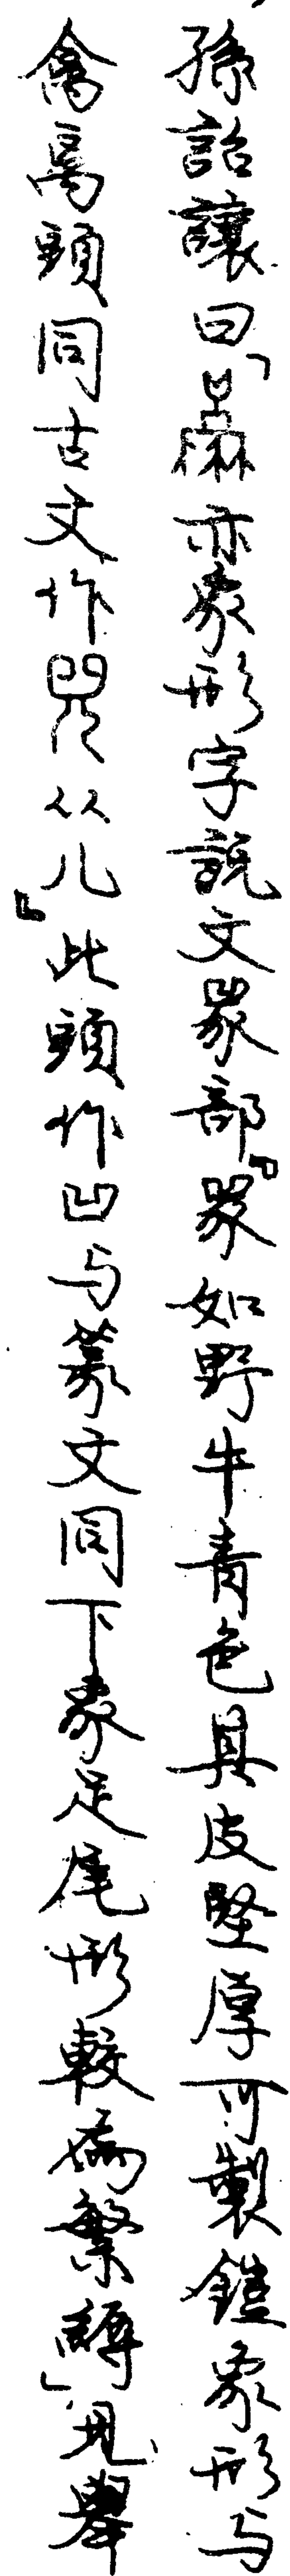 孫詒讓曰「亦象形字說文𤉡部『𤉡如野牛青色其皮堅厚可製鎧象形与
禽离頭同古文作从儿』此頭作凹与篆文同下象足尾形較為繁縟」見舉